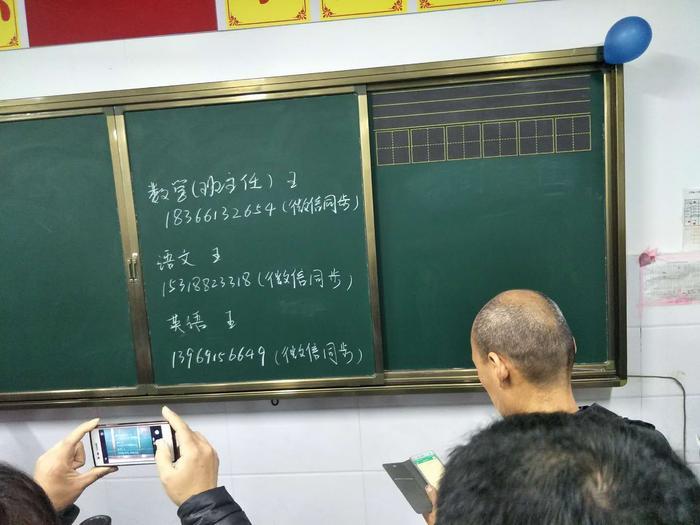 数学(班主任) 王
18366132654(微信同步)
语文 王
15318823318(微信同步)
英语 王
13969156649(微信同步)